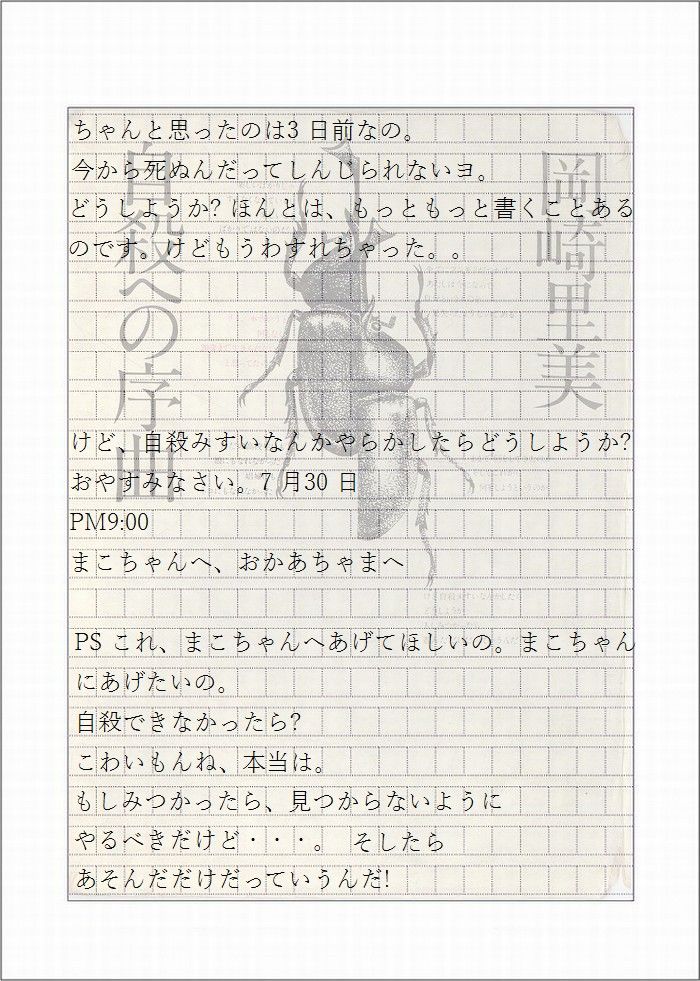 ちゃんと思ったのは3 日前なの。
今から死ぬんだってしんじられないヨ。
どうしようか? ほんとは、もっともっと書くことある
のです。けどもうわすれちゃった。。
けど、自殺みすいなんかやらかしたらどうしようか?
おやすみなさい。7 月30 日
PM9:00
まこちゃんへ、おかあちゃまへ
PS これ、まこちゃんへあげてほしいの。まこちゃん
にあげたいの。
自殺できなかったら?
こわいもんね、本当は。
もしみつかったら、見つからないように
やるべきだけど・・・。 そしたら
あそんだだけだっていうんだ!
岡崎里美
自殺への序曲